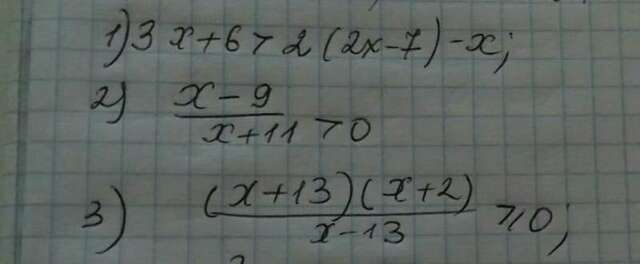 1) 3x+6>2(2x-7)-x;
2) (x-9)/(x+11)>0
3) ((x+13)(x+2))/(x-13)≥0;